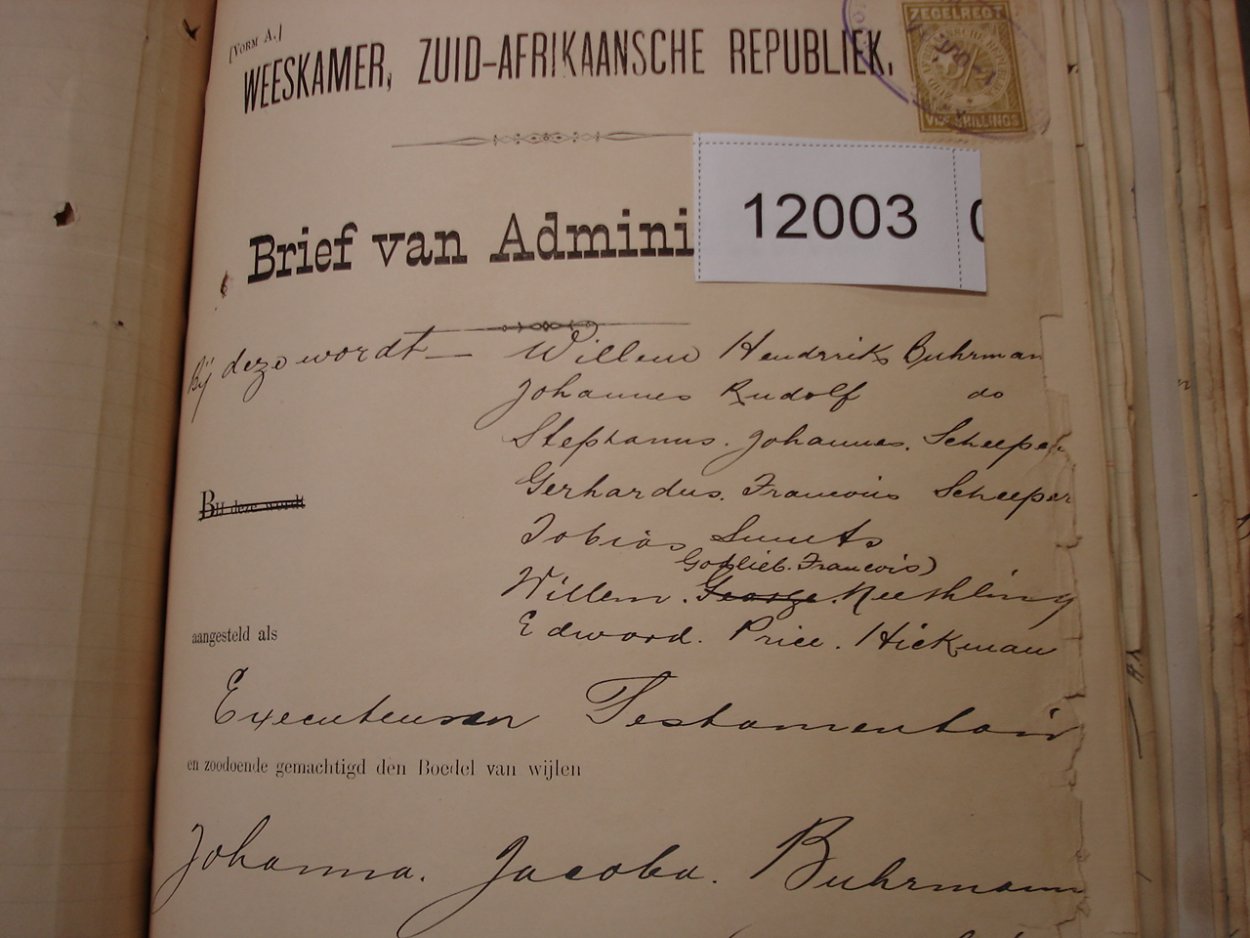 [Vorm A.]
WEESKAMER, ZUID-AFRIKAANSCHE REPUBLIEK.
ZEGELREGT
VIJF SHILLINGS
12003
Brief van Admini
Bij deze wordt — Willem Hendrik Buhrman
Johannes Rudolf do
Stephanus. Johannes. Scheeper
Gerhardus. Francois Scheeper
Bij deze wordt
Tobias Smuts
Gotlieb. Francois)
Willem. George. Neethling
aangesteld als
Edward. Price. Hickman
Executeuren Testamentair
en zoodoende gemachtigd den Boedel van wijlen
Johanna. Jacoba. Buhrmann